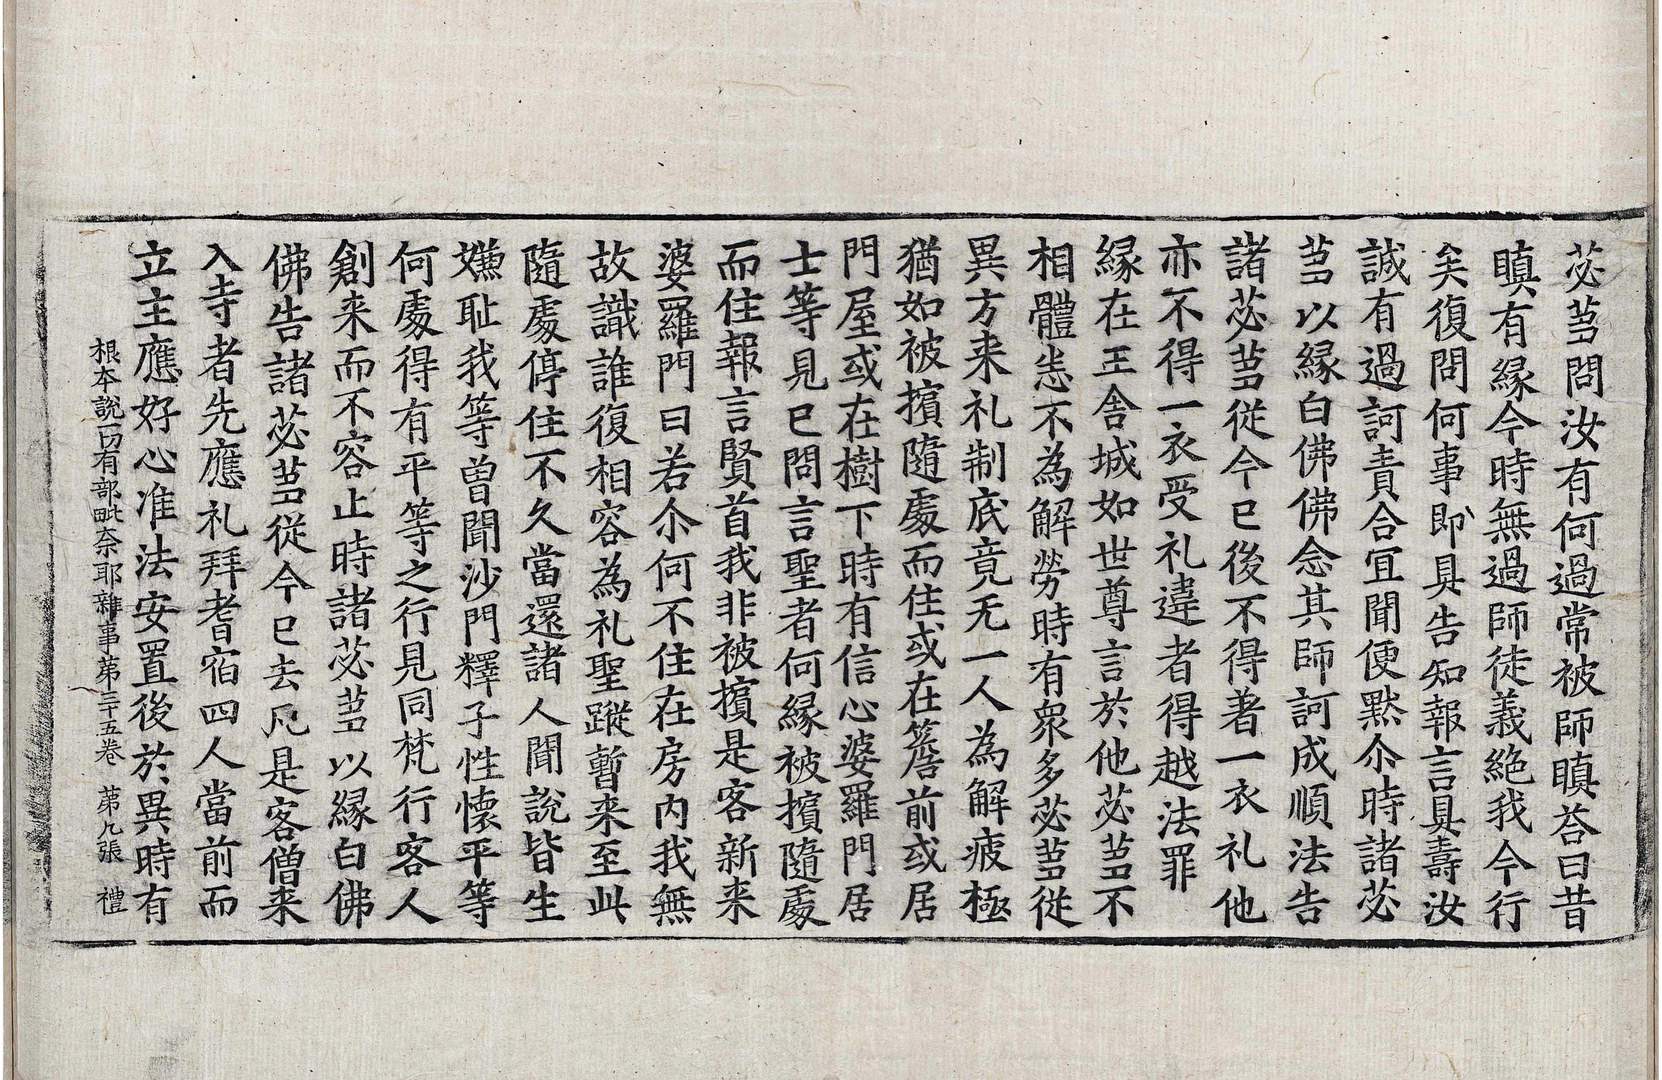 苾芻問汝有何過常被師瞋荅曰昔
瞋有緣今時無過師徒義絶我今行
矣復問何事即具告知報言具壽汝
誠有過訶責合冝聞便黙尒時諸苾
芻以緣白佛佛念其師訶成順法告
諸苾芻從今已後不得著一衣礼他
亦不得一衣受礼違者得越法罪
緣在王舍城如世尊言於他苾芻不
相體恙不為解勞時有衆多苾芻從
異方来礼制底竟无一人為解疲極
猶如被擯隨處而住或在簷前或居
門屋或在樹下時有信心婆羅門居
士等見已問言聖者何緣被擯隨處
而住報言賢首我非被擯是客新来
婆羅門曰若尒何不住在房内我無
故識誰復相容為礼聖蹤暫来至此
隨處停住不久當還諸人聞說皆生
嫌耻我等曾聞沙門釋子性懷平等
何處得有平等之行見同梵行客人
創来而不容止時諸苾芻以緣白佛
佛告諸苾芻從今已去凡是客僧来
入寺者先應礼拜耆宿四人當前而
立主應好心准法安置後於異時有
根本說一切有部毗奈耶雜事第三十五卷　第九張　禮